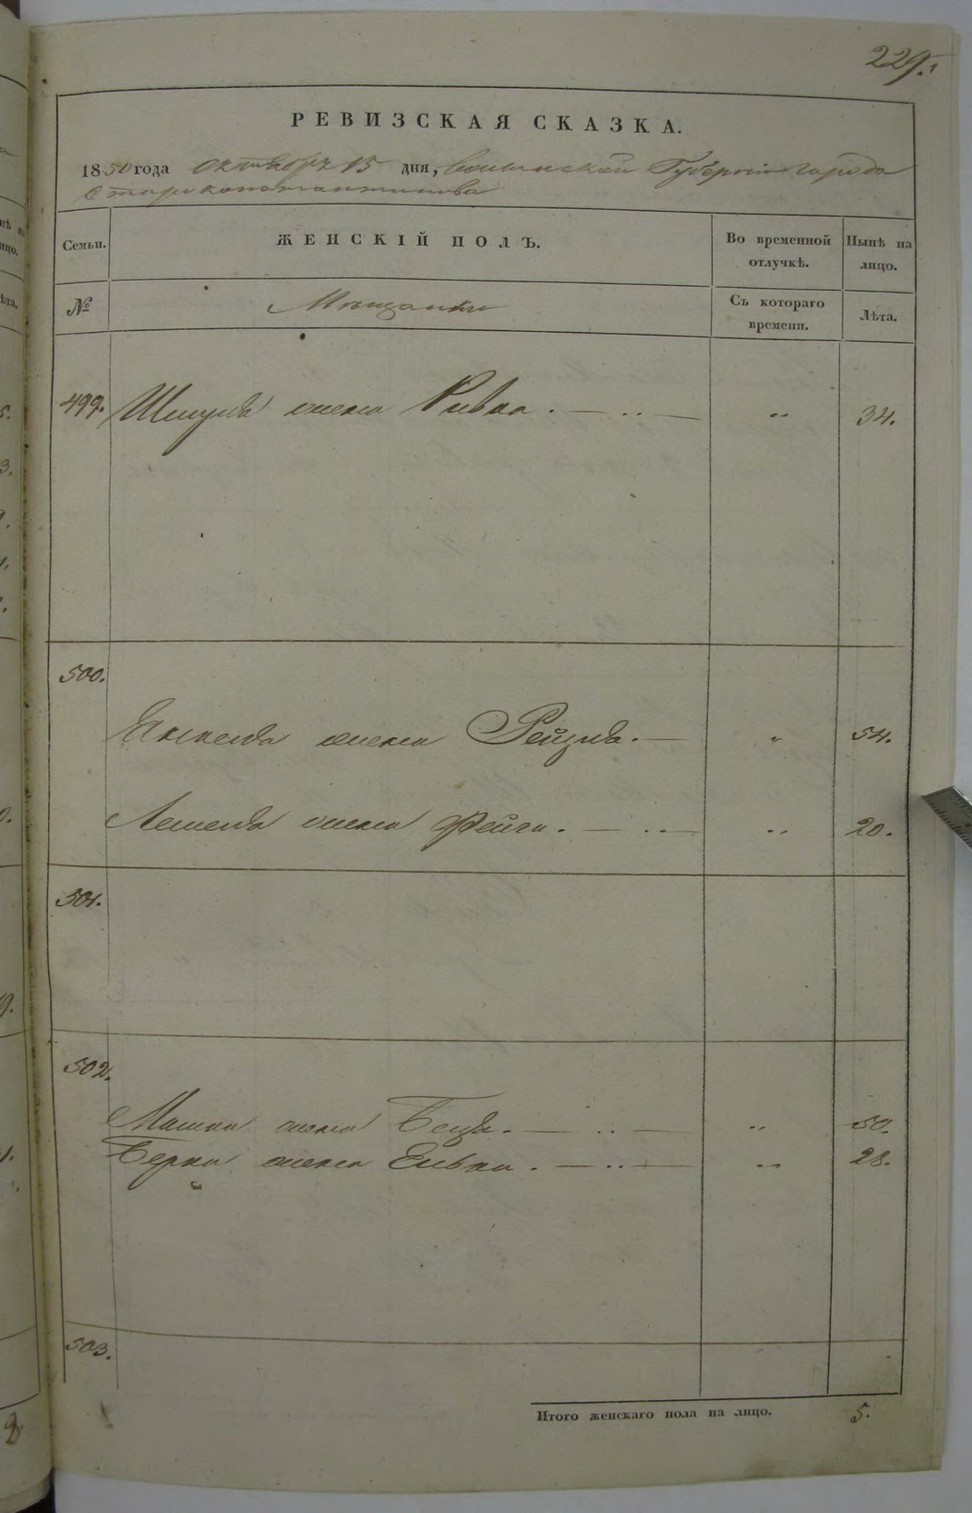 229.
РЕВИЗСКАЯ СКАЗКА.
1850 года Октября 15 дня, Волынской Губернии города
Староконстантинова
Семьи. ЖЕНСКІЙ ПОЛЪ. Во временной отлучкѣ. Нынѣ на лицо.
№ Мѣщанѣ Съ котораго времени. Лѣта.
499. Шмуля жена Ривка. — ·· — ·· 34.
500.
жена Рейзя. — ·· 54.
жена Фейга. — ·· — ·· 20.
501.
502.
Мошки жена Бася. — ·· — ·· 50.
Берка жена Сивка. — ·· — ·· 28.
503.
Итого женскаго пола на лицо. 5.